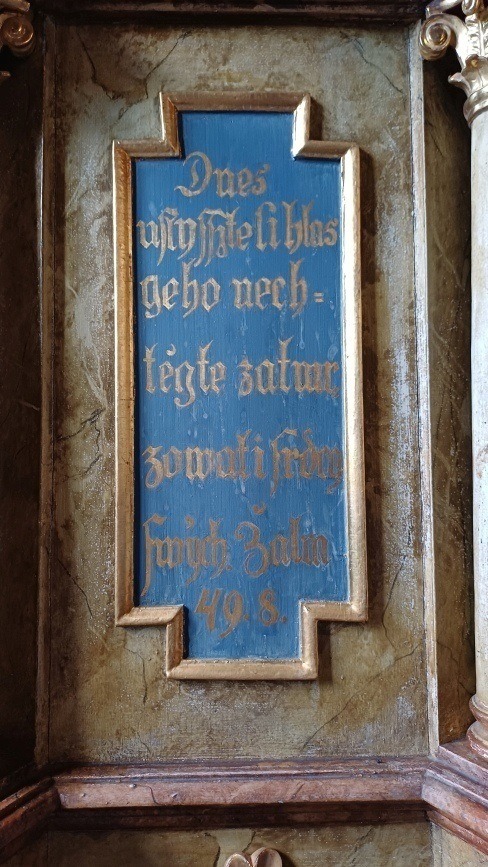 Dnes
uslyssyteli hlas
geho nech-
tėgte zatwr,
zowati srdcy
swých Žalm
49. 8.